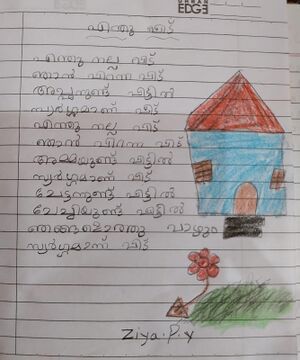 URBAN
EDGE
എന്തു വീട്
എന്തു നല്ല വീട്
ഞാൻ പിറന്ന വീട്
അച്ഛനുണ്ട് വീട്ടിൽ
സ്വർഗ്ഗമാണ് വീട്
എന്തു നല്ല വീട്
ഞാൻ പിറന്ന വീട്
അമ്മയുണ്ട് വീട്ടിൽ
സ്വർഗ്ഗമാണ് വീട്
ചേട്ടനുണ്ട് വീട്ടിൽ
ചേച്ചിയുണ്ട് വീട്ടിൽ
ഞങ്ങളൊത്തു വാഴും
സ്വർഗ്ഗമാണ് വീട്
Ziya.P.Y